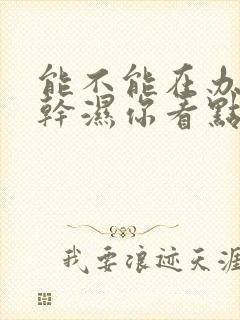 能不能在办
幹濕你看點
我要浪迹天涯